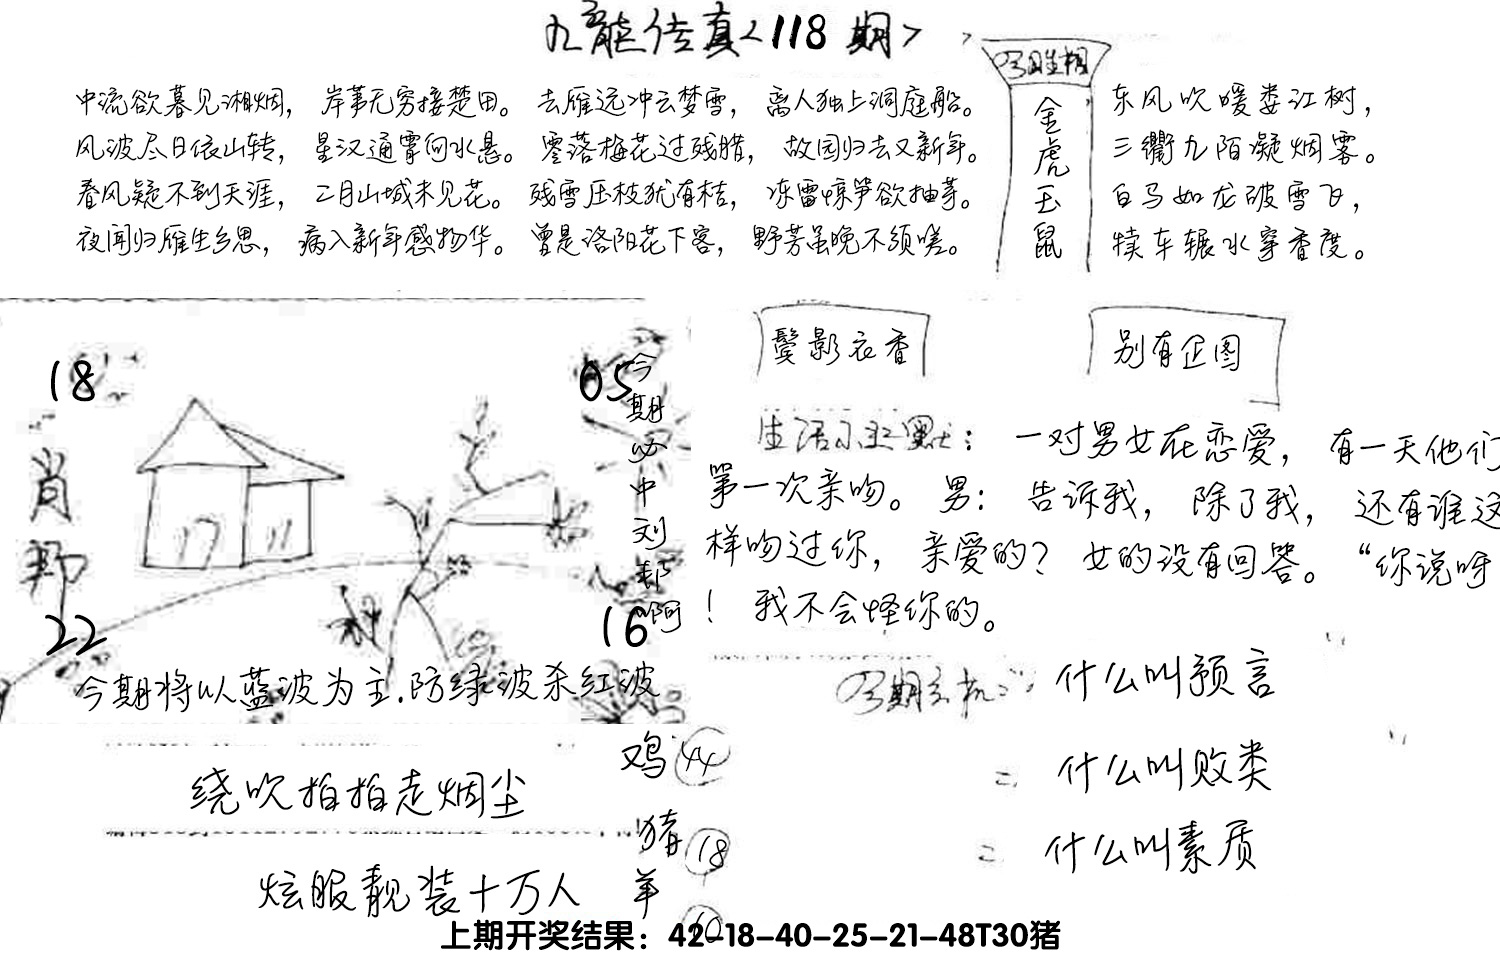 九龍传真<118期>
中流欲暮见湘烟，岸苇无穷接楚田。去雁远冲云梦雪，离人独上洞庭船。
风波尽日依山转，星汉通霄向水悬。零落梅花过残腊，故园归去又新年。
春风疑不到天涯，二月山城未见花。残雪压枝犹有桔，冻雷惊笋欲抽芽。
夜闻归雁生乡思，病入新年感物华。曾是洛阳花下客，野芳虽晚不须嗟。
今期生相
金虎玉鼠
东风吹暖娄江树，
三衢九陌凝烟雾。
白马如龙破雪飞，
犊车辗水穿香度。
18
05
肖
22
16
今期必中刘邦啊
今期将以蓝波为主.防绿波杀红波
鬓影衣香
别有企图
生活幽默：一对男女在恋爱，有一天他们
第一次亲吻。男：告诉我，除了我，还有谁这
样吻过你，亲爱的？女的没有回答。“你说呀
！我不会怪你的。
今期玄机：什么叫预言
= 什么叫败类
= 什么叫素质
绕吹拍拍走烟尘
炫服靓装十万人
鸡 44
猪 18
羊
上期开奖结果：42-18-40-25-21-48T30猪